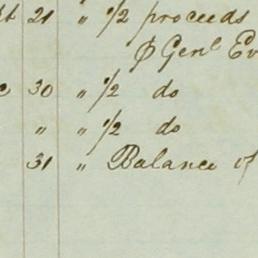 21 " 1/2 proceeds
Genl Ev
30 " 1/2 do
" " 1/2 do
31 " Balance of